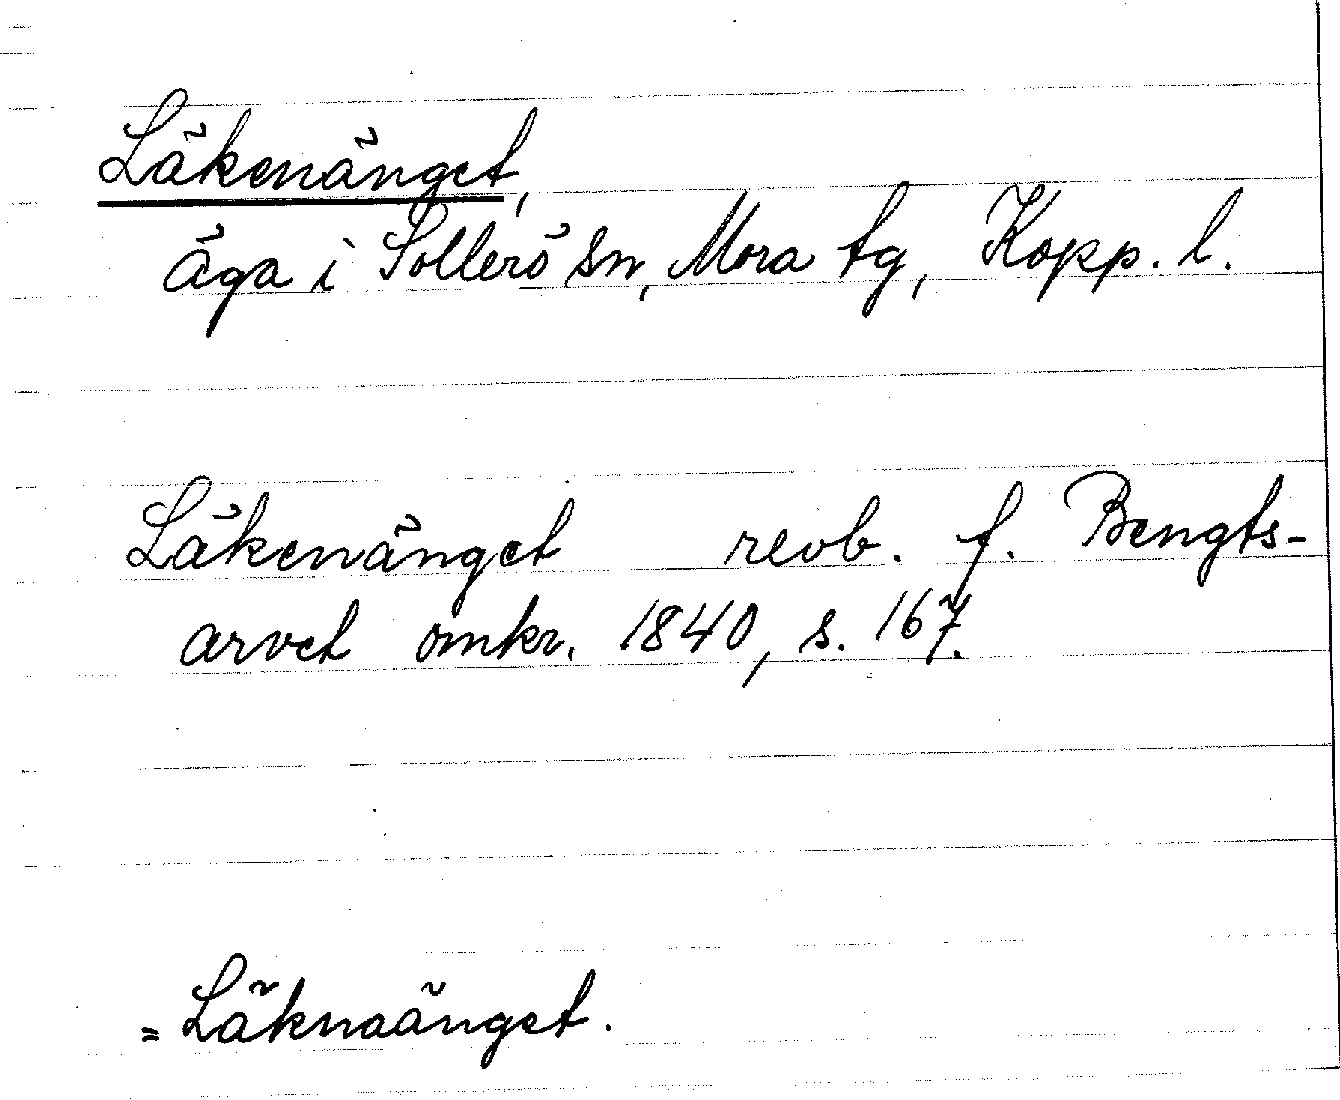 Läkenänget,
äga i Sollerö sn, Mora tg, Kopp. l.
Läkenänget revb. f. Bengts-
arvet omkr. 1840, s. 167.
= Läknaänget.